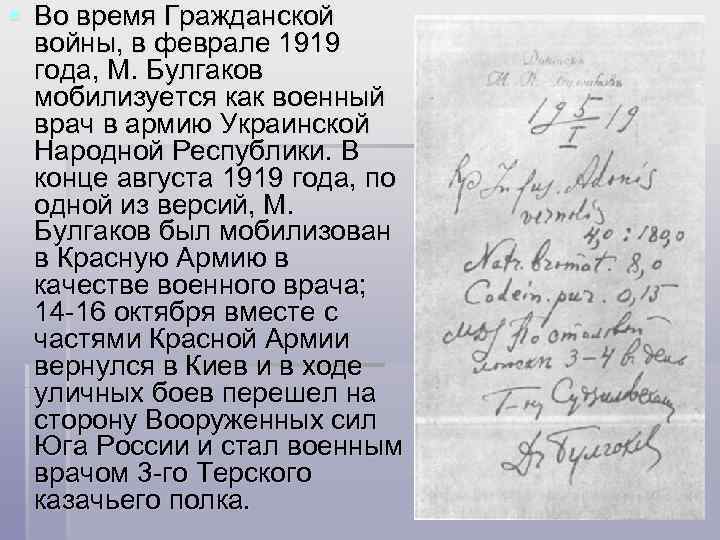 Во время Гражданской
войны, в феврале 1919
года, М. Булгаков
мобилизуется как военный
врач в армию Украинской
Народной Республики. В
конце августа 1919 года, по
одной из версий, М.
Булгаков был мобилизован
в Красную Армию в
качестве военного врача;
14-16 октября вместе с
частями Красной Армии
вернулся в Киев и в ходе
уличных боев перешел на
сторону Вооруженных сил
Юга России и стал военным
врачом 3-го Терского
казачьего полка.
М.
19 5/I 19
Rp Infus. Adonis
vernalis
4,0 : 180,0
Natr. bromat. 8,0
Codein. pur. 0,15
MDS По столовой
ложке 3-4 в день
Г-ну Судзиловскому
Dr Булгаков